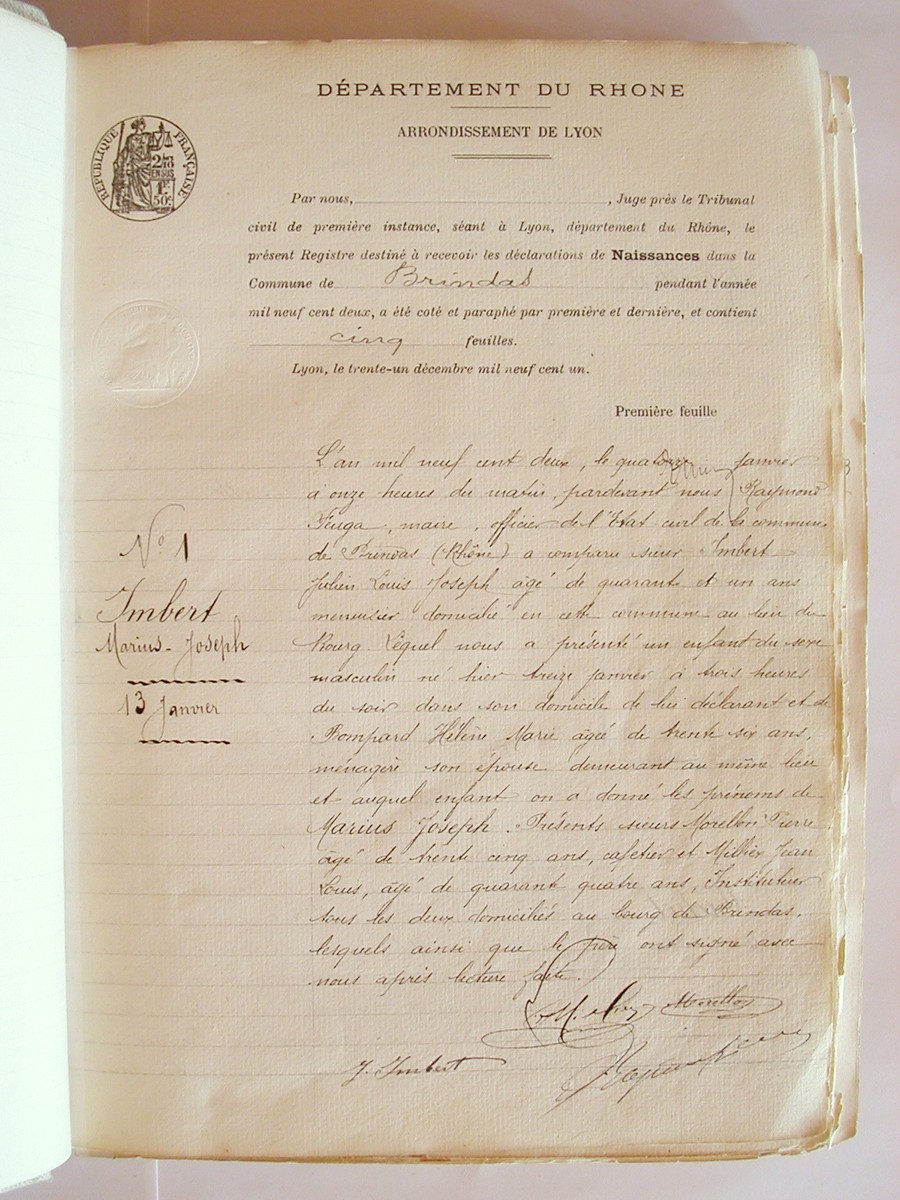 DÉPARTEMENT DU RHONE
ARRONDISSEMENT DE LYON
RÉPUBLIQUE FRANÇAISE
2/10 EN SUS
1F 50c
Par nous, , Juge près le Tribunal
civil de première instance, séant à Lyon, département du Rhône, le
présent Registre destiné à recevoir les déclarations de Naissances dans la
Commune de Brindas pendant l'année
mil neuf cent deux, a été coté et paraphé par première et dernière, et contient
cinq feuilles.
Lyon, le trente-un décembre mil neuf cent un.
Première feuille
L'an mil neuf cent deux, le quatorze janvier
à onze heures du matin, pardevant nous Raymond
Fuga, maire, officier de l'Etat civil de la commune
de Brindas (Rhône) a comparu sieur Imbert
Julien Louis Joseph âgé de quarante et un ans
menuisier domicilié en cette commune au lieu du
Bourg. Lequel nous a présenté un enfant du sexe
masculin né hier treize janvier à trois heures
du soir dans son domicile de lui déclarant et de
Bompard Hélène Marie âgée de trente six ans,
ménagère son épouse demeurant au même lieu
et auquel enfant on a donné les prénoms de
Marius Joseph. Présents sieurs Morellon Pierre
âgé de trente cinq ans, cafetier et Millier Jean
Louis, âgé de quarant quatre ans, Instituteur
tous les deux domiciliés au bourg de Brindas,
lesquels ainsi que le père ont signé avec
nous après lecture faite.
No 1
Imbert
Marius-Joseph
13 Janvier
Morellon
J. Imbert